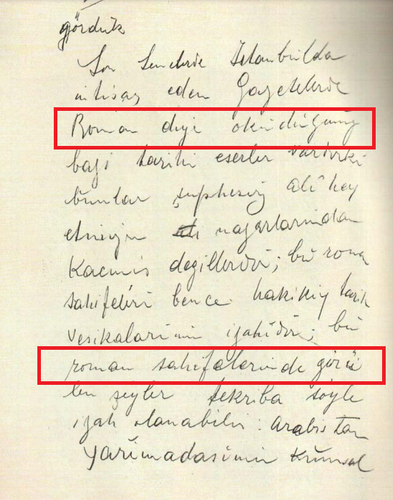 gördük
Son Senelerde İstanbulda
intişar eden Gazetelerde
Roman diye okuduğunuz
bazı tarihi eserler vardırki
bunlar şüphesiz ali hey
etinizin nazarlarından
Kaçmış değillerdir; bu roman
sahifeleri bence hakikiy tarih
vesikalarının izahıdır; bu
roman sahifelerinde görü
len şeyler tekriba şöyle
izah olunabilir: arabistan
yarımadasının